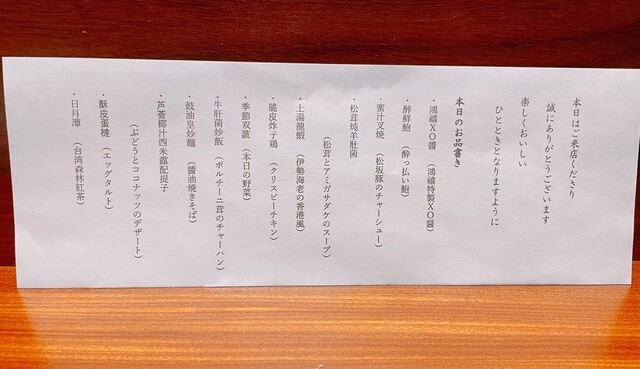 本日はご来店くださり
誠にありがとうございます
楽しくおいしい
ひとときとなりますように
本日のお品書き
・鴻禧XO醬 (鴻禧特製XO醤)
・醉鮮鮑 (酔っ払い鮑)
・蜜汁叉焼 (松坂豚のチャーシュー)
・松茸炖羊肚菌
(松茸とアミガサダケのスープ)
・上湯龍蝦 (伊勢海老の香港風)
・脆皮炸子鶏 (クリスピーチキン)
・季節双蔬 (本日の野菜)
・牛肝菌炒飯 (ポルチーニ茸のチャーハン)
・豉油皇炒麺 (醤油焼きそば)
・芦荟椰汁西米露配提子
(ぶどうとココナッツのデザート)
・酥皮蛋撻 (エッグタルト)
・日月潭 (台湾森林紅茶)